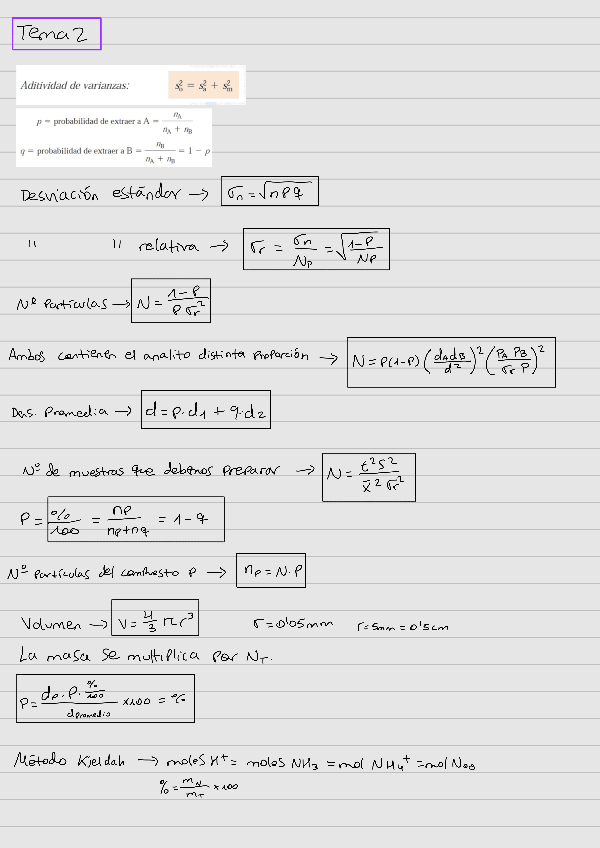 Tema 2
Aditividad de varianzas: s²ₒ = s²ₐ + s²ₘ
p = probabilidad de extraer a A = n_A / (n_A + n_B)
q = probabilidad de extraer a B = n_B / (n_A + n_B) = 1 − p
Desviación estándar → σn = √npq
" " relativa → σr = σn / Np = √((1-P) / NP)
Nº Partículas → N = (1-P) / (P σr²)
Ambos contienen el analito distinta proporción → N = P(1-P) (dA dB / d²)² ((PA PB) / (σr P))²
Des. Promedia → d = p·d1 + q·d2
Nº de muestras que debemos preparar → N = t²s² / (x̄² σr²)
P = % / 100 = np / (np+nq) = 1 - q
Nº Partículas del compuesto P → np = N·P
Volumen → V = 4/3 π r³ r = 0'05 mm r = 5mm = 0'5cm
La masa se multiplica por NT.
P = (dp · P · %/100) / dpromedio x100 = %
Método Kjeldah → moles H⁺ = moles NH3 = mol NH4⁺ = mol N
% = mN / mT x 100